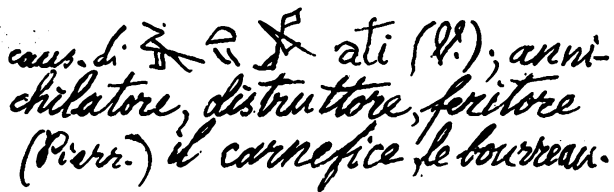 caus. di ati (V.); anni-
chilatore, distruttore, feritore
(Pierr.) il carnefice, le bourreau.